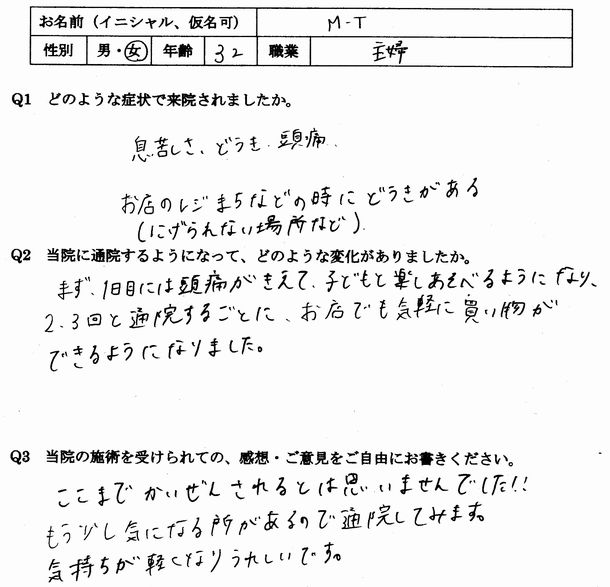 お名前（イニシャル、仮名可） M-T
性別 男・女 年齢 32 職業 主婦
Q1 どのような症状で来院されましたか。
息苦しさ、どうき、頭痛、
お店のレジまちなどの時にどうきがある
(にげられない場所など).
Q2 当院に通院するようになって、どのような変化がありましたか。
まず、1日目には頭痛がきえて、子どもと楽しあそべるようになり、
2、3回と通院するごとに、お店でも気軽に買い物が
できるようになりました。
Q3 当院の施術を受けられての、感想・ご意見をご自由にお書きください。
ここまでかいぜんされるとは思いませんでした!!
もう少し気になる所があるので通院してみます。
気持ちが軽くなりうれしいです。